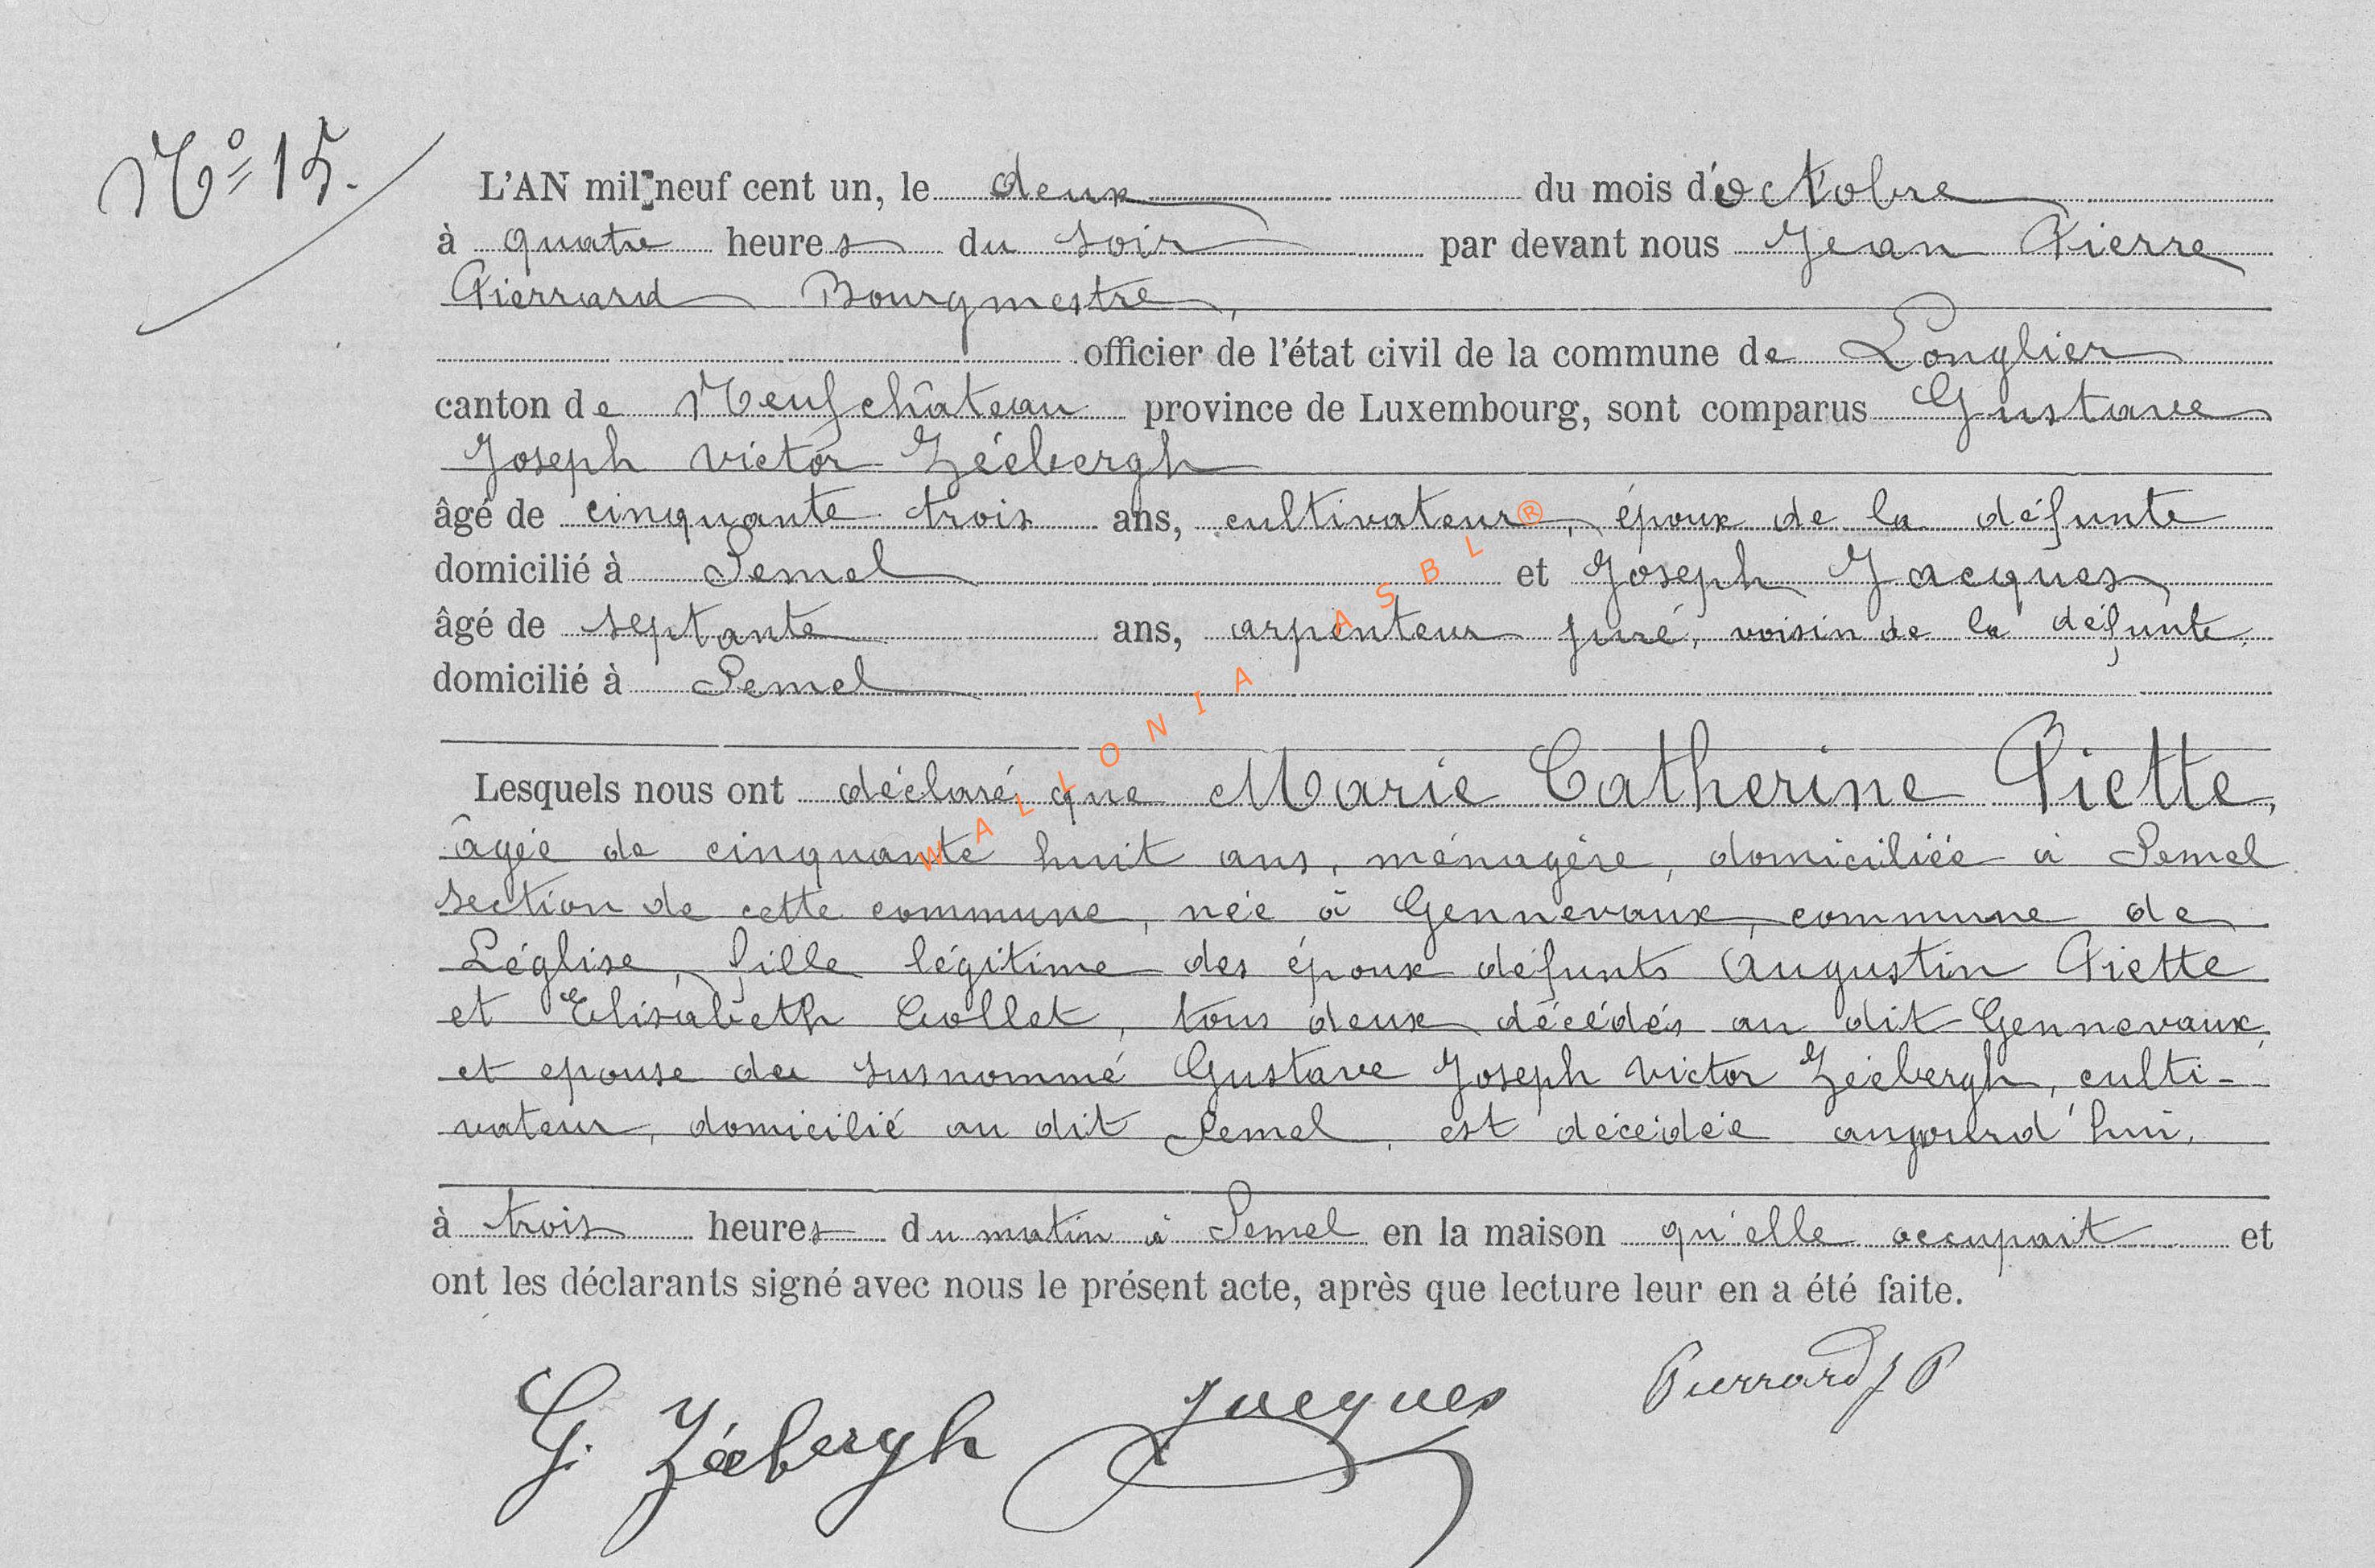 Nº 15.
L'AN mil neuf cent un, le deux du mois d'octobre
à quatre heures du soir par devant nous Jean Pierre
Pierrard Bourgmestre,
officier de l'état civil de la commune de Longlier
canton de Neufchâteau province de Luxembourg, sont comparus Gustave
Joseph Victor Zéebergh
âgé de cinquante trois ans, cultivateur, époux de la défunte
domicilié à Semel et Joseph Jacques
âgé de septante ans, arpenteur juré, voisin de la défunte,
domicilié à Semel
Lesquels nous ont déclaré que Marie Catherine Piette,
âgée de cinquante huit ans, ménagère, domiciliée à Semel
section de cette commune, née à Gennevaux, commune de
Léglise, fille légitime des époux défunts Augustin Piette
et Elisabeth Collet, tous deux décédés au dit Gennevaux,
et epouse du susnommé Gustave Joseph Victor Zéebergh, culti-
vateur, domicilié au dit Semel, est décédée aujourd'hui,
à trois heures du matin à Semel en la maison qu'elle occupait et
ont les déclarants signé avec nous le présent acte, après que lecture leur en a été faite.
G. Zéebergh Jacques Pierrard J P
WALLONIA ASBL ®